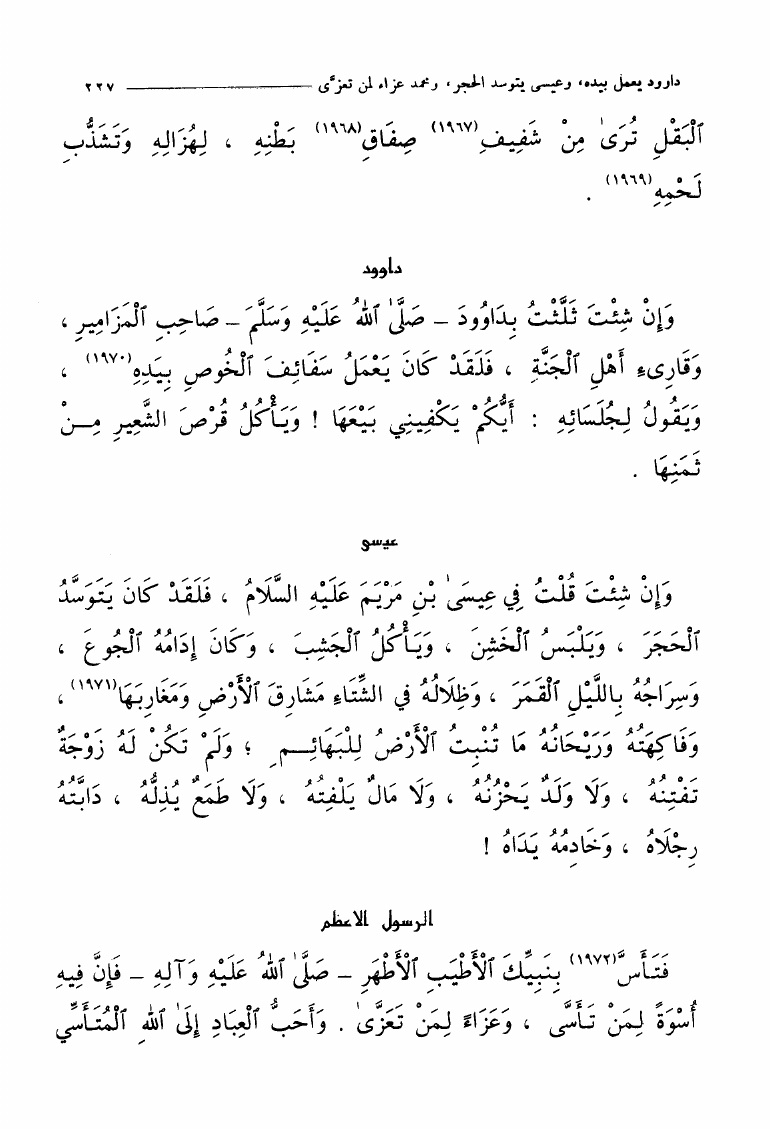 داوود يعمل بيده، وعيسى يتوسد الحجر، ومحمد عزاء لمن تعزّى ــــــــــــــــــ ٢٢٧
ٱلْبَقْلِ تُرَىٰ مِنْ شَفِيفِ(١٩٦٧) صِفَاقِ(١٩٦٨) بَطْنِهِ ، لِهُزَالِهِ وَتَشَذُّبِ
لَحْمِهِ(١٩٦٩) .
داوود
وَإِنْ شِئْتَ ثَلَّثْتُ بِدَاوُودَ ـ صَلَّىٰ ٱللهُ عَلَيْهِ وَسَلَّمَ ـ صَاحِبِ ٱلْمَزَامِيرِ ،
وَقَارِىءِ أَهْلِ ٱلْجَنَّةِ ، فَلَقَدْ كَانَ يَعْمَلُ سَفَائِفَ ٱلْخُوصِ بِيَدِهِ(١٩٧٠) ،
وَيَقُولُ لِجُلَسَائِهِ : أَيُّكُمْ يَكْفِينِي بَيْعَهَا ! وَيَأْكُلُ قُرْصَ الشَّعِيرِ مِــنْ
ثَمَنِهَا .
عيسى
وَإِنْ شِئْتَ قُلْتُ فِي عِيسَىٰ بْنِ مَرْيَمَ عَلَيْهِ السَّلَامُ ، فَلَقَدْ كَانَ يَتَوَسَّدُ
ٱلْحَجَرَ ، وَيَلْبَسُ ٱلْخَشِنَ ، وَيَأْكُلُ ٱلْجَشِبَ ، وَكَانَ إِدَامُهُ ٱلْجُوعَ ،
وَسِرَاجُهُ بِاللَّيْلِ ٱلْقَمَرَ ، وَظِلَالُهُ فِي الشِّتَاءِ مَشَارِقَ ٱلْأَرْضِ وَمَغَارِبَهَا(١٩٧١) ،
وَفَاكِهَتُهُ وَرَيْحَانُهُ مَا تُنْبِتُ ٱلْأَرْضُ لِلْبَهَائِــمِ ؛ وَلَمْ تَكُنْ لَهُ زَوْجَةٌ
تَفْتِنُهُ ، وَلَا وَلَدٌ يَحْزُنُهُ ، وَلَا مَالٌ يَلْفِتُهُ ، وَلَا طَمَعٌ يُذِلُّهُ ، دَابَّتُهُ
رِجْلَاهُ ، وَخَادِمُهُ يَدَاهُ !
الرسول الاعظم
فَتَأَسَّ(١٩٧٢) بِنَبِيِّكَ ٱلْأَطْيَبِ ٱلْأَطْهَرِ ـ صَلَّىٰ ٱللهُ عَلَيْهِ وَآلِهِ ـ فَإِنَّ فِيهِ
أُسْوَةً لِمَنْ تَأَسَّى ، وَعَزَاءً لِمَنْ تَعَزَّىٰ . وَأَحَبُّ ٱلْعِبَادِ إِلَىٰ ٱللهِ ٱلْمُتَأَسِّي